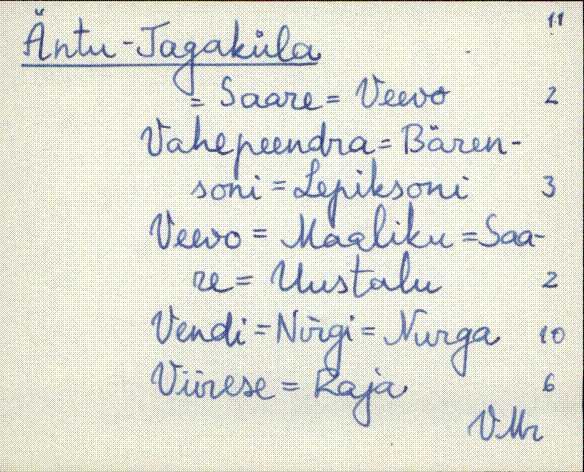 11
Äntu-Jagaküla
= Saare = Veevo 2
Vahepeendra = Bären-
soni = Lepiksoni 3
Veevo = Maaliku = Saa-
re = Uustalu 2
Vendi = Nirgi = Nurga 10
Viirese = Raja 6
VMr